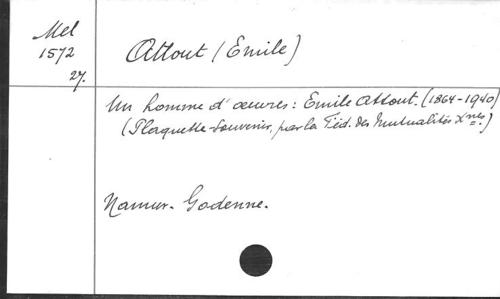 Mel
1572
27.
Attout (Emile)
Un homme d'œuvres: Emile Attout. (1864-1940)
(Plaquette-souvenir, par la Féd. des Mutualités Xnes.)
Namur. Godenne.